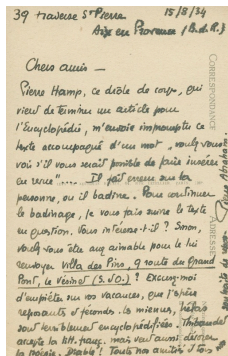 39 traverse St Pierre 15/8/34
Aix en Provence (B.d.R.)
Chers amis —
Pierre Hamp, ce drôle de corps, qui
vient de terminer un article pour
l'Encyclopédie, m'envoie impromptu ce
texte accompagné d'un mot „ voulez-vous
voir s'il vous serait possible de faire insérer
en revue " .... Il fait erreur sur la
personne, ou il badine. Pour continuer
le badinage, je vous fais suivre le texte
en question. Vous intéresse-t-il ? Sinon,
voulez vous être assez aimable pour le lui
renvoyer Villa des Pins, 9 route du Grand
Pont, le Vésinet (S. & O.) ? Excusez-moi
d'empiéter sur vos vacances, que j'espère
reposantes et fécondes. Les miennes, hélas
sont terriblement encyclopédifiées. Thibaudet
accepte la litt. franç. mais veut aussi
la poésie. Diable ! Toutes nos amitiés
CORRESPONDANCE
ADRESSE
Pierre Abraham